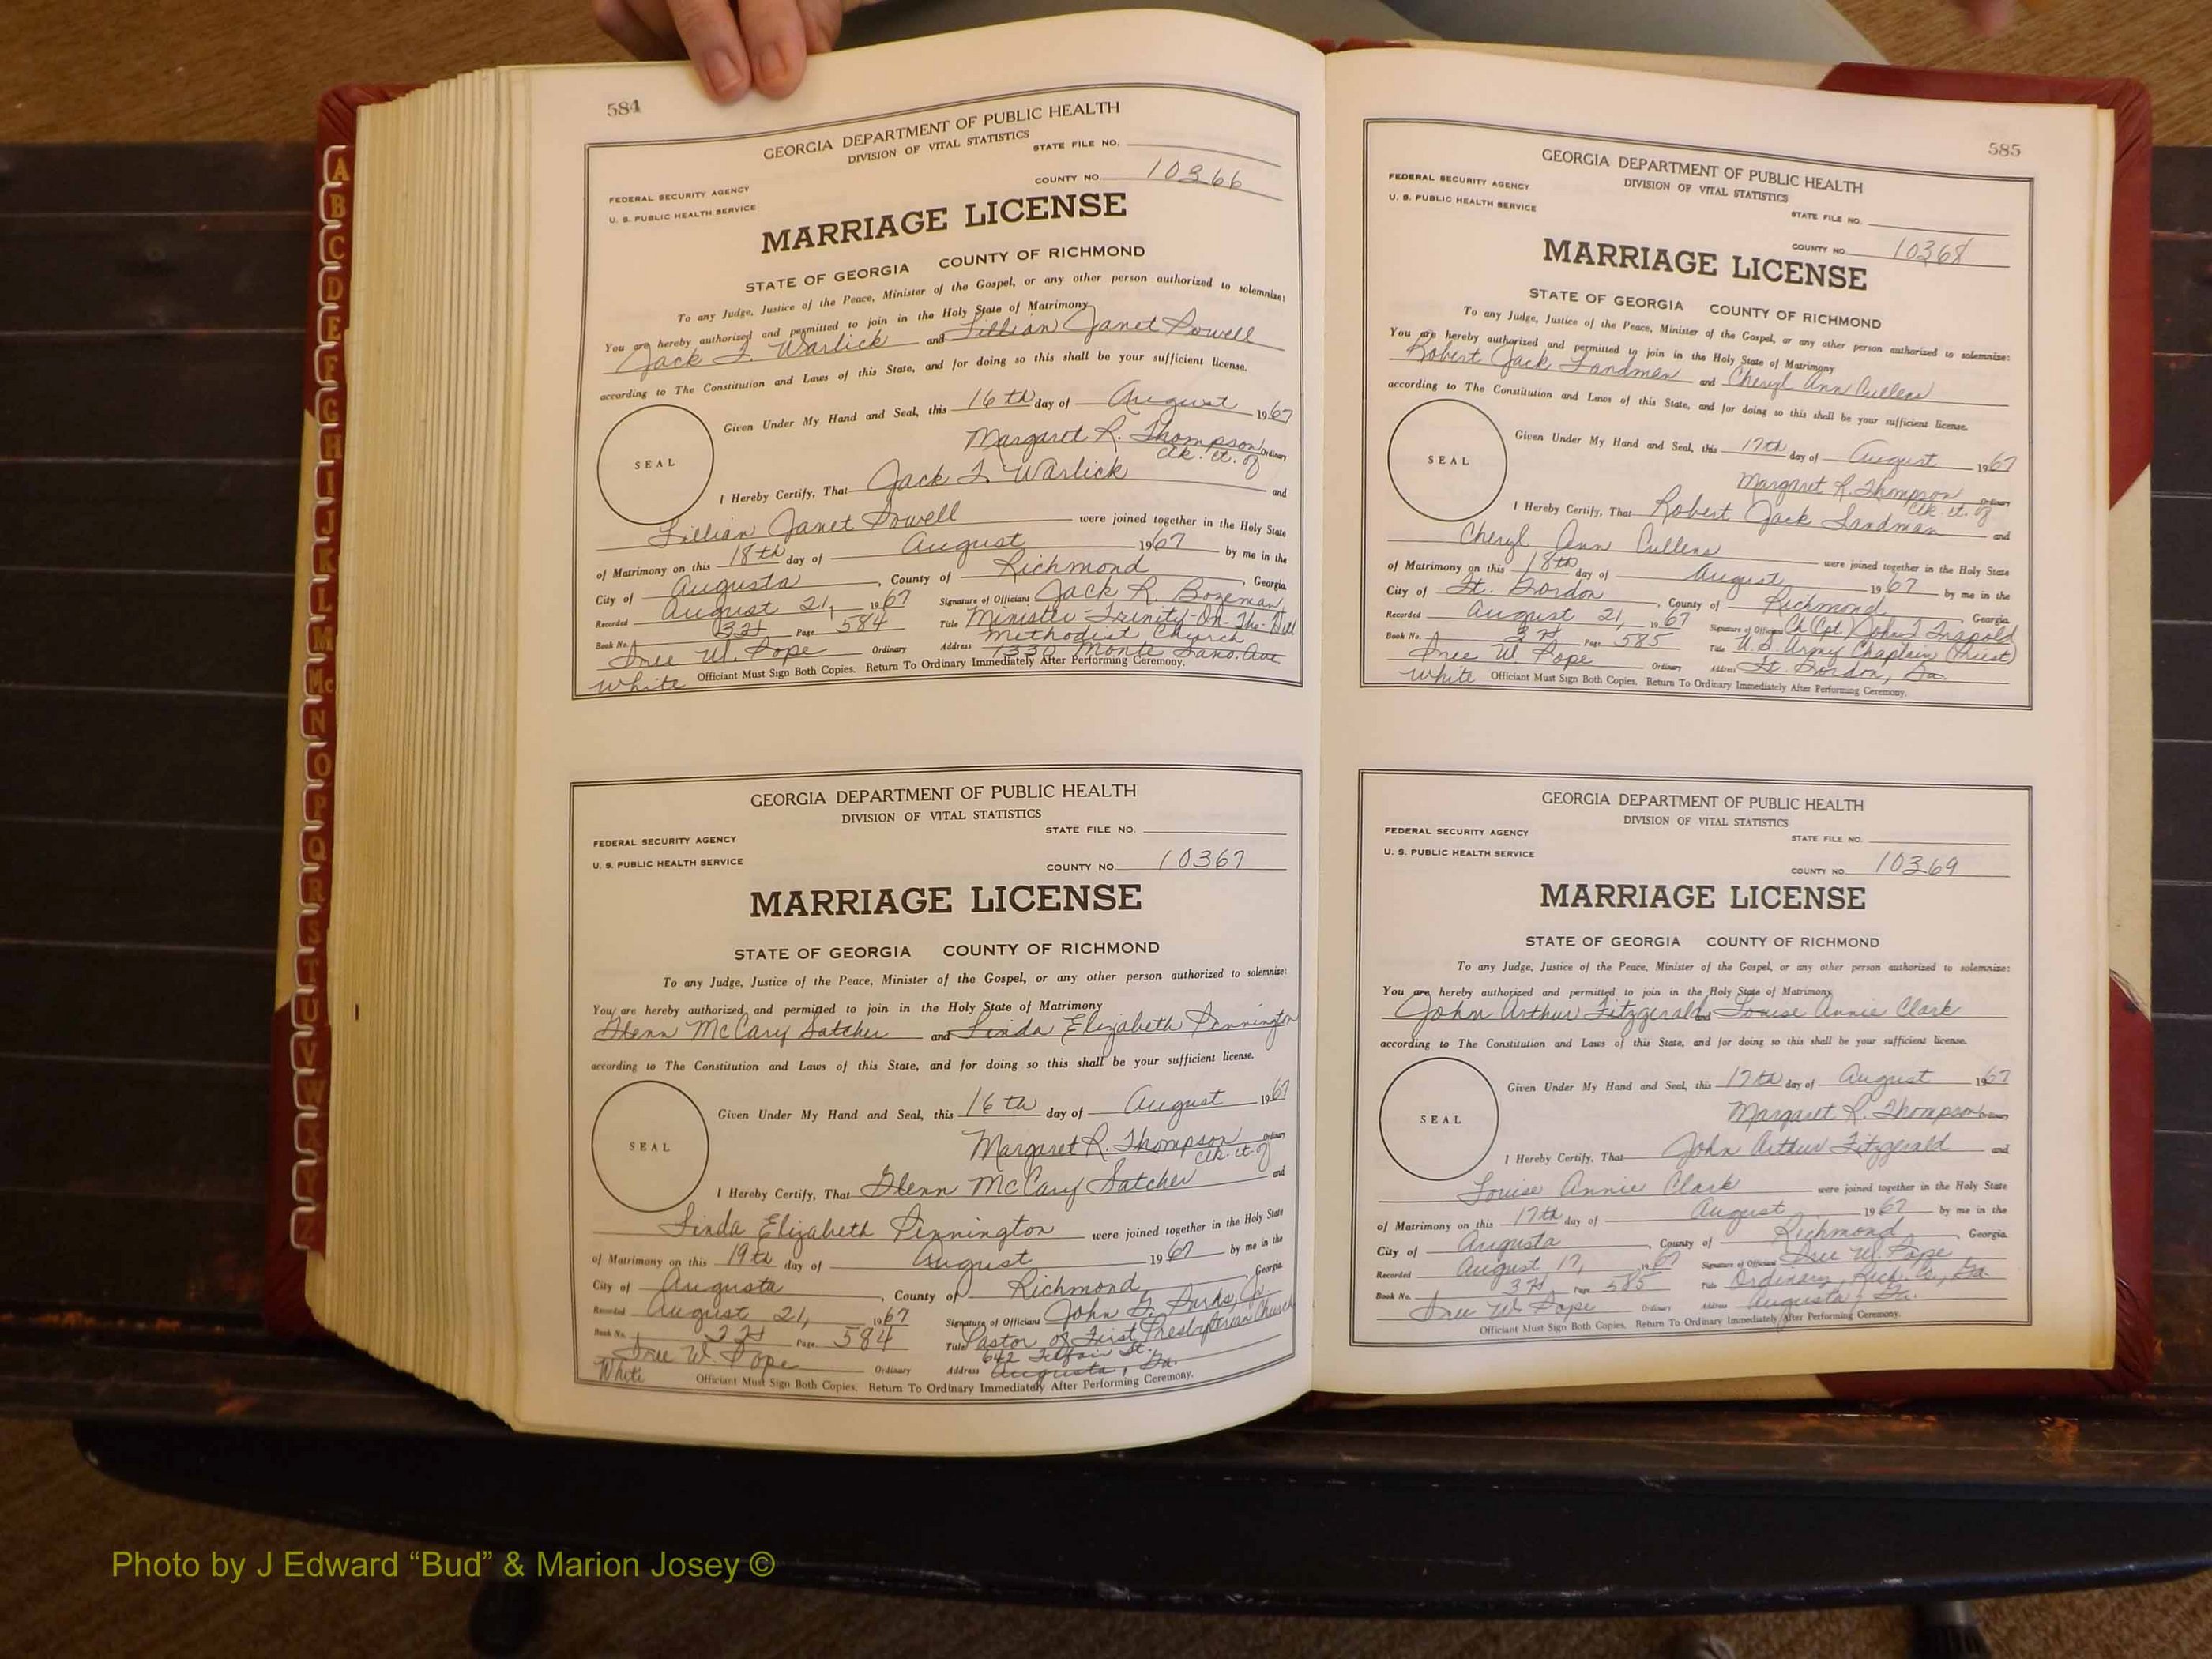 584
GEORGIA DEPARTMENT OF PUBLIC HEALTH
DIVISION OF VITAL STATISTICS
STATE FILE NO.
FEDERAL SECURITY AGENCY
COUNTY NO. 10366
U. S. PUBLIC HEALTH SERVICE
MARRIAGE LICENSE
STATE OF GEORGIA COUNTY OF RICHMOND
To any Judge, Justice of the Peace, Minister of the Gospel, or any other person authorized to solemnize:
You are hereby authorized and permitted to join in the Holy State of Matrimony
Jack L. Warlick and Lillian Janet Powell
according to The Constitution and Laws of this State, and for doing so this shall be your sufficient license.
Given Under My Hand and Seal, this 16th day of August 1967
SEAL
Margaret R. Thompson Ordinary
Clk. Ct. of
I Hereby Certify, That Jack L. Warlick and
Lillian Janet Powell were joined together in the Holy State
of Matrimony on this 18th day of August 1967 by me in the
City of Augusta, County of Richmond, Georgia.
Recorded August 21, 1967 Signature of Officiant Jack R. Bozeman
Book No. 32 Page 584 Title Minister-Trinity-On-The-Hill
Methodist Church
Ordinary Address 1330 Monte Sano Ave.
White Officiant Must Sign Both Copies. Return To Ordinary Immediately After Performing Ceremony.
GEORGIA DEPARTMENT OF PUBLIC HEALTH
DIVISION OF VITAL STATISTICS
STATE FILE NO.
FEDERAL SECURITY AGENCY
U. S. PUBLIC HEALTH SERVICE
COUNTY NO. 10367
MARRIAGE LICENSE
STATE OF GEORGIA COUNTY OF RICHMOND
To any Judge, Justice of the Peace, Minister of the Gospel, or any other person authorized to solemnize:
You are hereby authorized and permitted to join in the Holy State of Matrimony
Glenn McCary Satcher and Linda Elizabeth Pennington
according to The Constitution and Laws of this State, and for doing so this shall be your sufficient license.
Given Under My Hand and Seal, this 16th day of August 1967
SEAL
Margaret R. Thompson Ordinary
Clk. Ct. of
I Hereby Certify, That Glenn McCary Satcher and
Linda Elizabeth Pennington were joined together in the Holy State
of Matrimony on this 19th day of August 1967 by me in the
City of Augusta, County of Richmond, Georgia.
Recorded August 21, 1967 Signature of Officiant John G. Parks, Jr.
Book No. 32 Page 584 Title Pastor of First Presbyterian Church
642 Telfair St.
W. Pope Ordinary Address Augusta, Ga.
White Officiant Must Sign Both Copies. Return To Ordinary Immediately After Performing Ceremony.
585
GEORGIA DEPARTMENT OF PUBLIC HEALTH
DIVISION OF VITAL STATISTICS
FEDERAL SECURITY AGENCY
U. S. PUBLIC HEALTH SERVICE
STATE FILE NO.
COUNTY NO. 10368
MARRIAGE LICENSE
STATE OF GEORGIA COUNTY OF RICHMOND
To any Judge, Justice of the Peace, Minister of the Gospel, or any other person authorized to solemnize:
You are hereby authorized and permitted to join in the Holy State of Matrimony
Robert Jack Landman and Cheryl Ann Cullens
according to The Constitution and Laws of this State, and for doing so this shall be your sufficient license.
Given Under My Hand and Seal, this 17th day of August 1967
SEAL
Margaret R. Thompson Ordinary
Clk. Ct. of
I Hereby Certify, That Robert Jack Landman and
Cheryl Ann Cullens were joined together in the Holy State
of Matrimony on this 18th day of August 1967 by me in the
City of Ft. Gordon, County of Richmond, Georgia.
Recorded August 21, 1967 Signature of Officiant Ch (Cpt.) John J.
Book No. Page 585 Title U.S. Army Chaplain (Priest)
W. Pope Ordinary Address Ft. Gordon, Ga.
White Officiant Must Sign Both Copies. Return To Ordinary Immediately After Performing Ceremony.
GEORGIA DEPARTMENT OF PUBLIC HEALTH
DIVISION OF VITAL STATISTICS
FEDERAL SECURITY AGENCY
STATE FILE NO.
U. S. PUBLIC HEALTH SERVICE
COUNTY NO. 10369
MARRIAGE LICENSE
STATE OF GEORGIA COUNTY OF RICHMOND
To any Judge, Justice of the Peace, Minister of the Gospel, or any other person authorized to solemnize:
You are hereby authorized and permitted to join in the Holy State of Matrimony
John Arthur Fitzgerald and Louise Annie Clark
according to The Constitution and Laws of this State, and for doing so this shall be your sufficient license.
Given Under My Hand and Seal, this 17th day of August 1967
SEAL
Margaret R. Thompson Ordinary
I Hereby Certify, That John Arthur Fitzgerald and
Louise Annie Clark were joined together in the Holy State
of Matrimony on this 17th day of August 1967 by me in the
City of Augusta, County of Richmond, Georgia.
Recorded August 17, 1967 Signature of Officiant W. Pope
Book No. Page 585 Title Ordinary, Rich. Co., Ga.
W. Pope Ordinary Address Augusta, Ga.
Officiant Must Sign Both Copies. Return To Ordinary Immediately After Performing Ceremony.
A
B
C
D
E
F
G
H
I
J
K
L
M
Mc
N
O
P
Q
R
S
T
U
V
W
X
Y
Z
Photo by J Edward “Bud” & Marion Josey ©